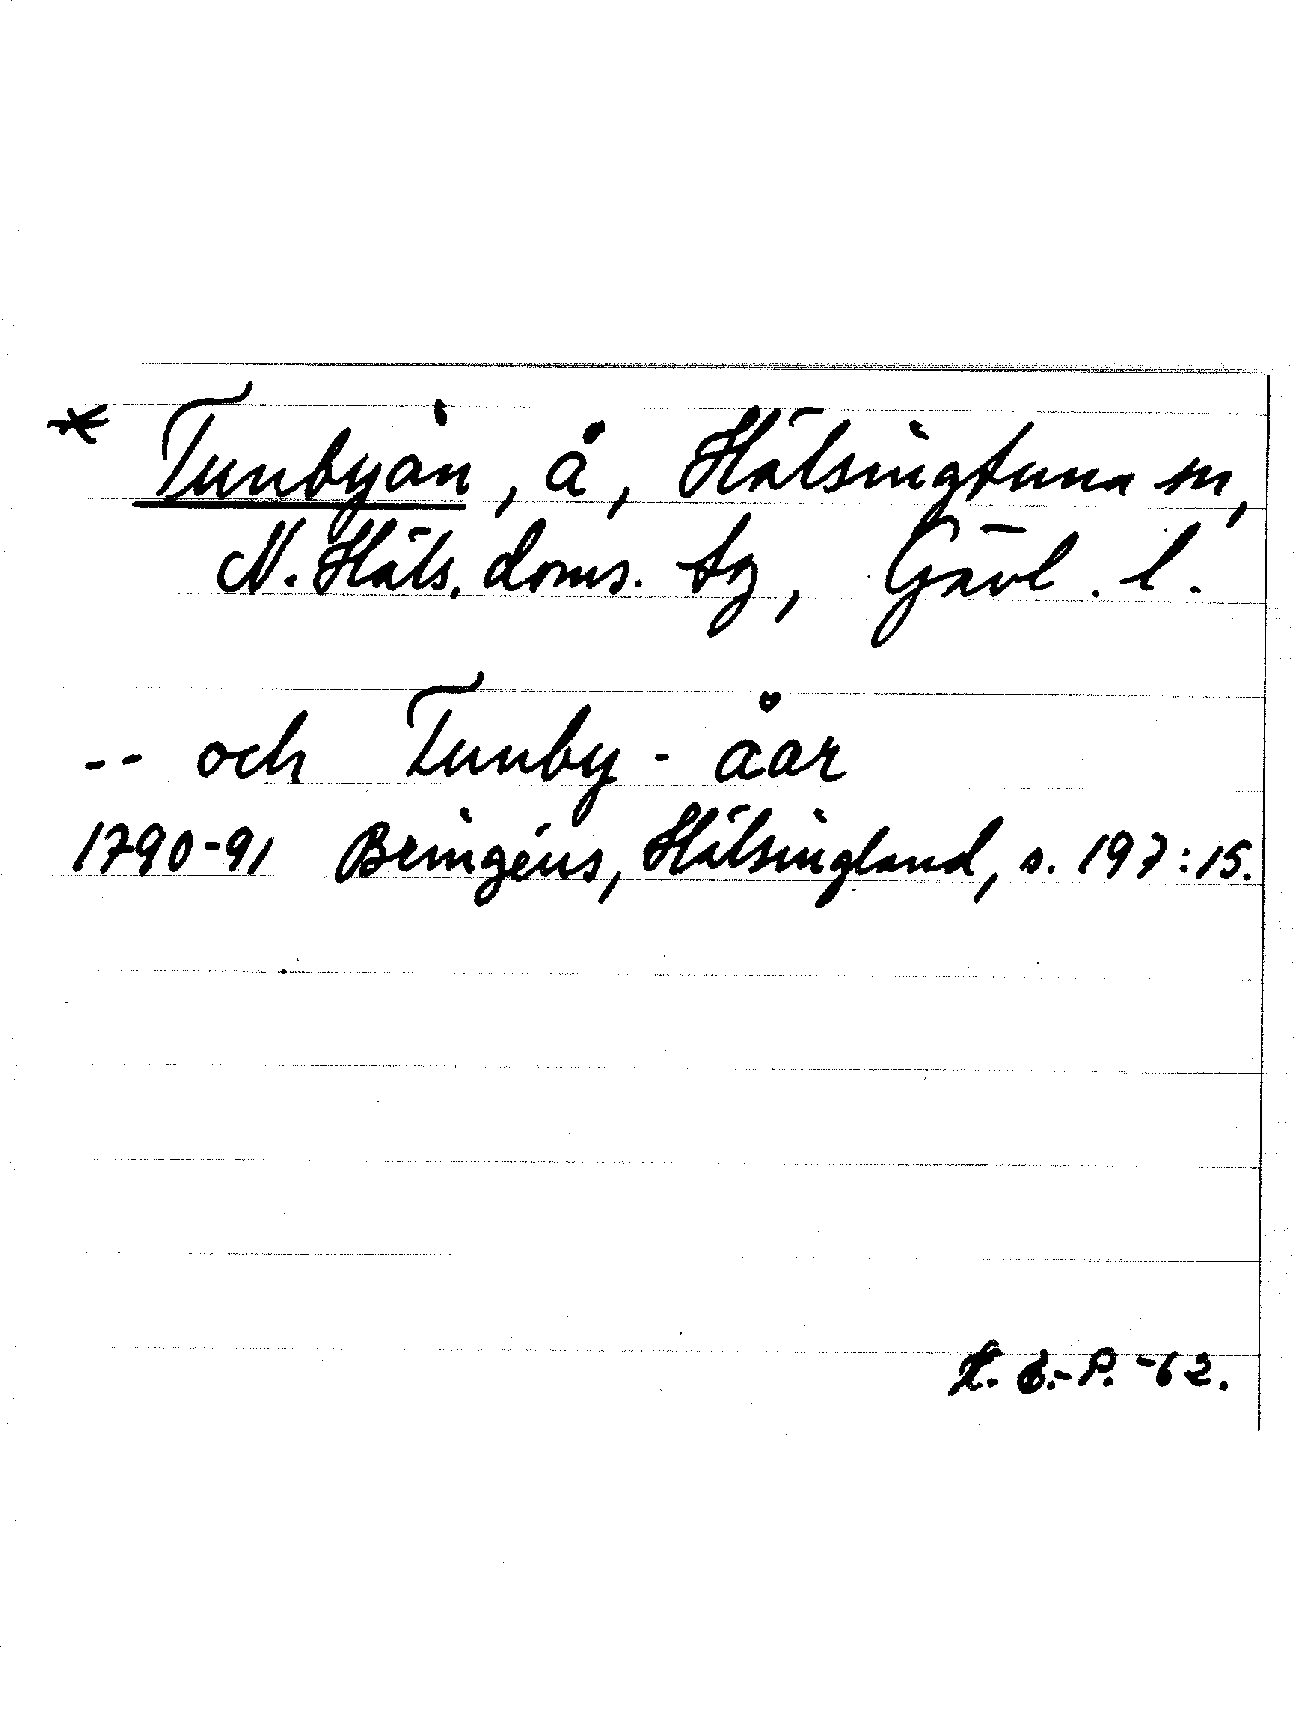 * Tunbyån, å, Hälsingtuna sn,
N. Häls. doms. tg, Gävl. l.
-- och Tunby - åar
1790-91 Bringéus, Hälsingland, s. 197:15.
P. -62.